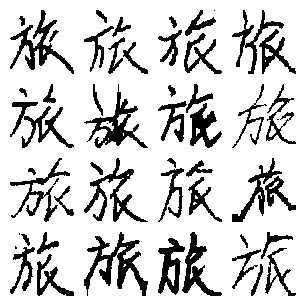 旅旅旅旅
旅旅旅旅
旅旅旅旅
旅旅旅旅